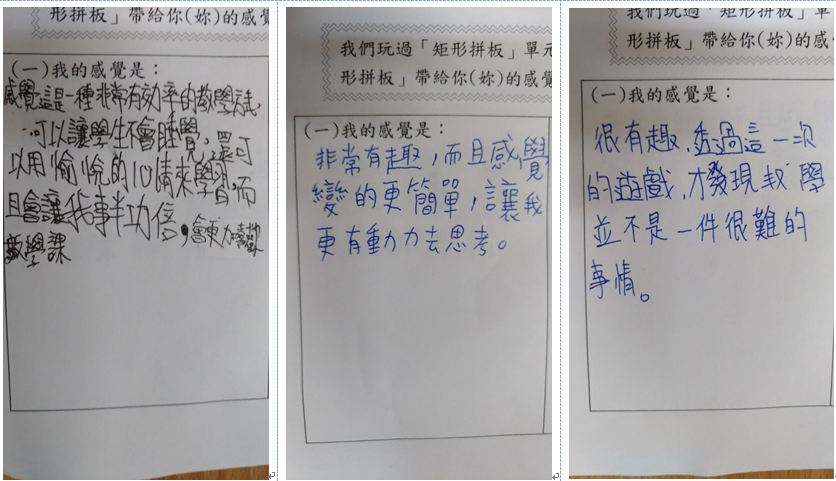 形拼板」帶給你(妳)的感
(一)我的感覺是：
感覺這是一種非常有效率的教學方式,
可以讓學生不會睡覺,還可
以用愉悅的心情來學習,而
且會讓我事半功倍,會更加喜歡
數學課
我們玩過「矩形拼板」單元
形拼板」帶給你(妳)的感覺
(一)我的感覺是：
非常有趣,而且感覺
變的更簡單,讓我
更有動力去思考。
我們玩過「矩形拼板」單
形拼板」帶給你(妳)的感
(一)我的感覺是：
很有趣,透過這一次
的遊戲,才發現數學
並不是一件很難的
事情。